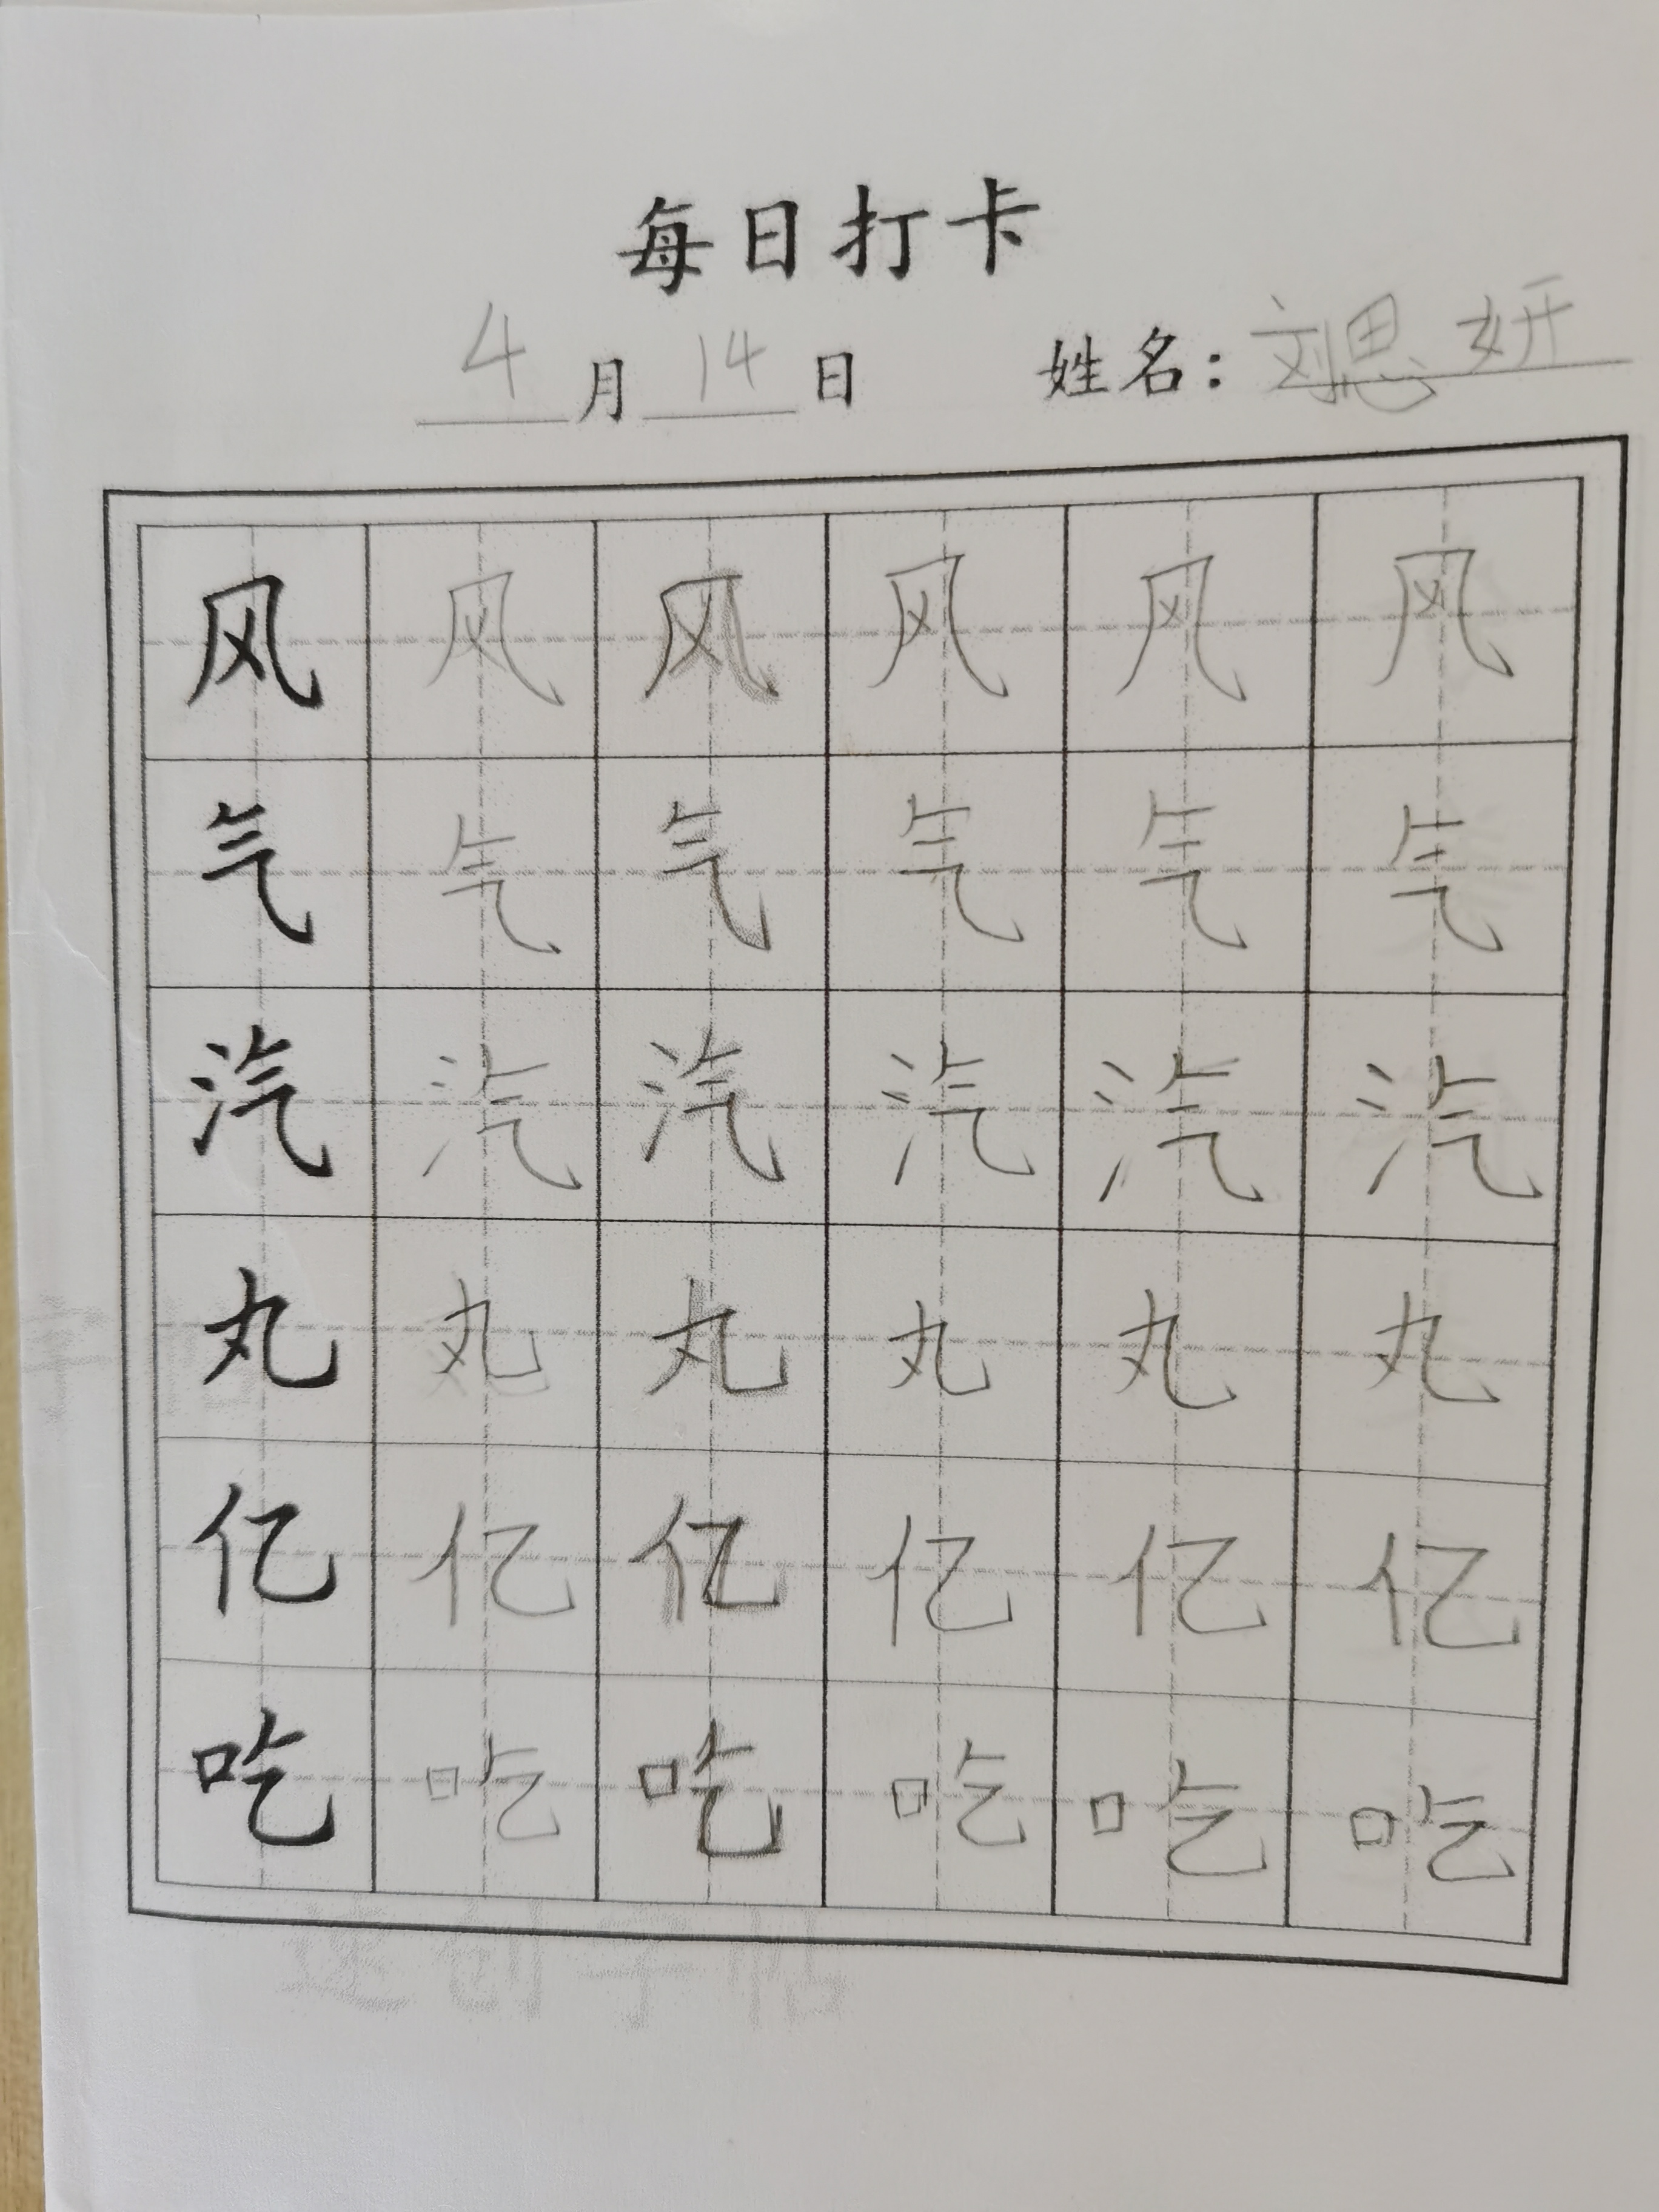 每日打卡
4月14日 姓名：刘思妍
风风风风风风
气气气气气气
汽汽汽汽汽汽
丸丸丸丸丸丸
亿亿亿亿亿亿
吃吃吃吃吃吃